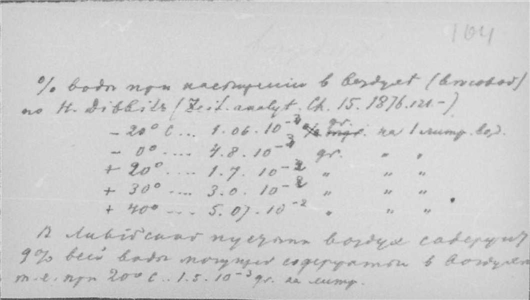 104
% воды при насыщении в воздухе (весовой)
по H. Dibbits (Zeit. analyt. Ch. 15. 1876. 121-)
- 20° C ... 1.06.10⁻³ gr. на 1 литр. воз.
- 0° ... 4.8.10⁻³ gr. " "
+ 20° .... 1.7.10⁻² " " "
+ 30° .... 3.0.10⁻² " " "
+ 40° .... 5.07.10⁻² " " "
В Ливийской пустыни воздух содержит
9% всей воды могущей содержаться в воздухе
т.е. при 20° C .. 1.5.10⁻³ gr. на литр.